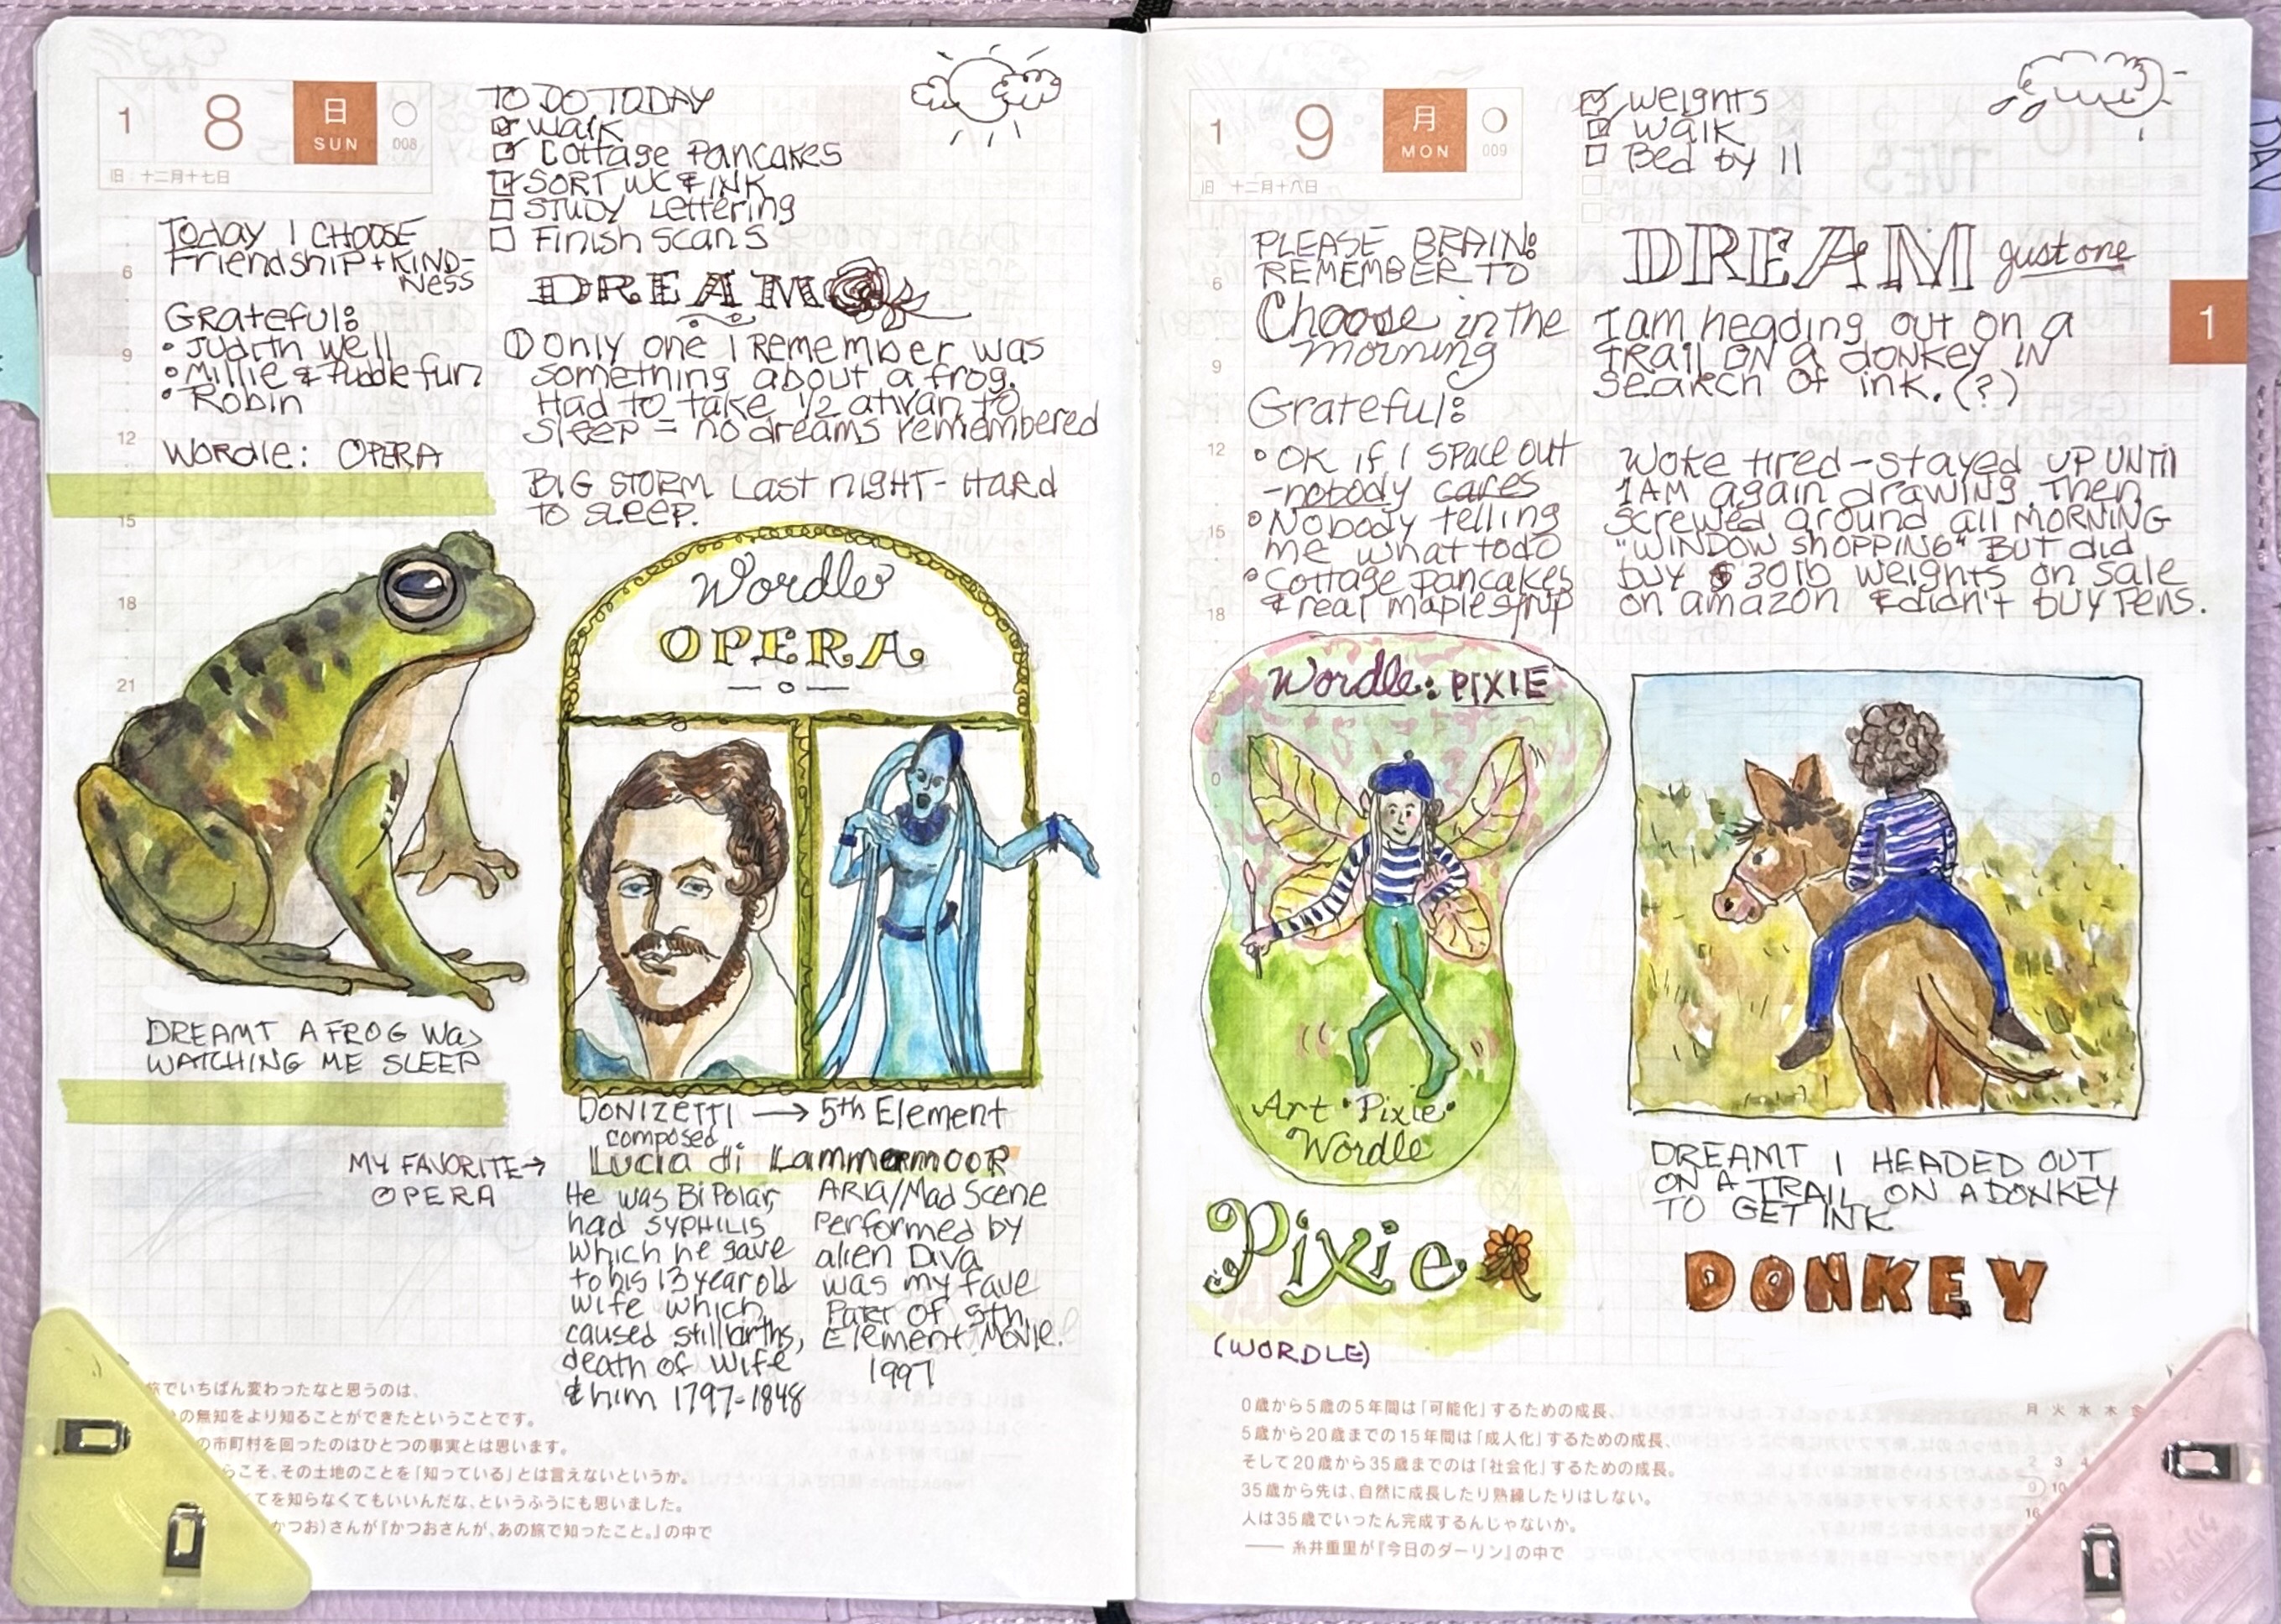 1 8 日 SUN 008
旧 十二月十七日
TO DO TODAY
walk
Cottage Pancakes
SORT WC & INK
STUDY Lettering
Finish scans
Today I CHOOSE
Friendship + KIND-
Ness
Grateful:
• Judith well
• Millie & Puddle fun
• Robin
Wordle: OPERA
DREAM
① Only one I Remember was
something about a frog.
Had to take 1/2 ativan to
sleep = no dreams remembered
BIG STORM Last night - Hard
TO SLEEP.
6
9
12
15
18
21
Wordle
OPERA
DREAMT A FROG Was
WATCHING ME SLEEP
DONIZETTI → 5th Element
composed
MY FAVORITE →
OPERA
Lucia di Lammermoor
He was BiPolar,
had SYPHILIS
which he gave
to his 13 year old
wife which
caused stillbirths,
death of wife
& him 1797-1848
ARIA/Mad Scene
Performed by
alien Diva
was my fave
Part of 5th
Element Movie.
1997
旅でいちばん変わったなと思うのは、
の無知をより知ることができたということです。
の市町村を回ったのはひとつの事実とは思います。
らこそ、その土地のことを「知っている」とは言えないというか。
てを知らなくてもいいんだな、というふうにも思いました。
かつお）さんが『かつおさんが、あの旅で知ったこと。』の中で
1 9 月 MON 009
旧 十二月十八日
weights
walk
Bed by 11
PLEASE BRAIN:
REMEMBER TO
Choose in the
morning
Grateful:
• OK if I space out
- nobody cares
• Nobody telling
me what to do
• Cottage pancakes
& real maple syrup
DREAM just one
I am heading out on a
TRAIL ON a donkey IN
search of ink. (?)
Woke tired - stayed UP UNTIl
1AM again drawing. Then
screwed around all MORNING
"WINDOW SHOPPING" But did
buy $ 30lb weights on sale
on amazon & didn't buy Pens.
1
6
9
12
15
18
0
3
Wordle: PIXIE
Art Pixie
Wordle
Pixie
(WORDLE)
DREAMT I HEADED OUT
ON A TRAIL ON A DONKEY
TO GET INK
DONKEY
0歳から5歳の5年間は「可能化」するための成長、
5歳から20歳までの15年間は「成人化」するための成長、
そして20歳から35歳までのは「社会化」するための成長。
35歳から先は、自然に成長したり熟練したりはしない。
人は35歳でいったん完成するんじゃないか。
—— 糸井重里が『今日のダーリン』の中で
月 火 水 木 金
2 3 4
9 10
16